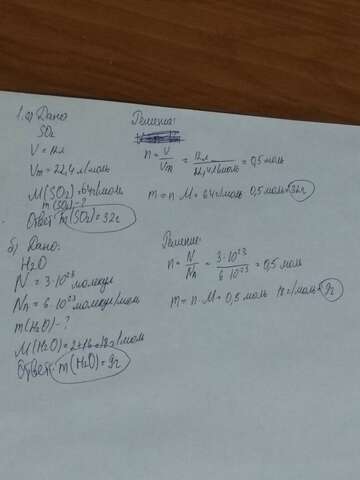 1. а) Дано
SO₂
V = 12л
Vm = 22,4 л/моль
M(SO₂) = 64г/моль
m(SO₂) - ?
Ответ: m(SO₂) = 32г
Решение:
n = V/Vm = 12л/22,4 л/моль = 0,5 моль
m = n · M = 64г/моль · 0,5 моль = 32г
б) Дано:
H₂O
N = 3 · 10²³ молекул
Nл = 6 · 10²³ молекул/моль
m(H₂O) - ?
M(H₂O) = 2+16=18г/моль
Ответ: m(H₂O) = 9г
Решение:
n = N/Nл = 3 · 10²³/6 · 10²³ = 0,5 моль
m = n · M = 0,5 моль · 18г/моль = 9г